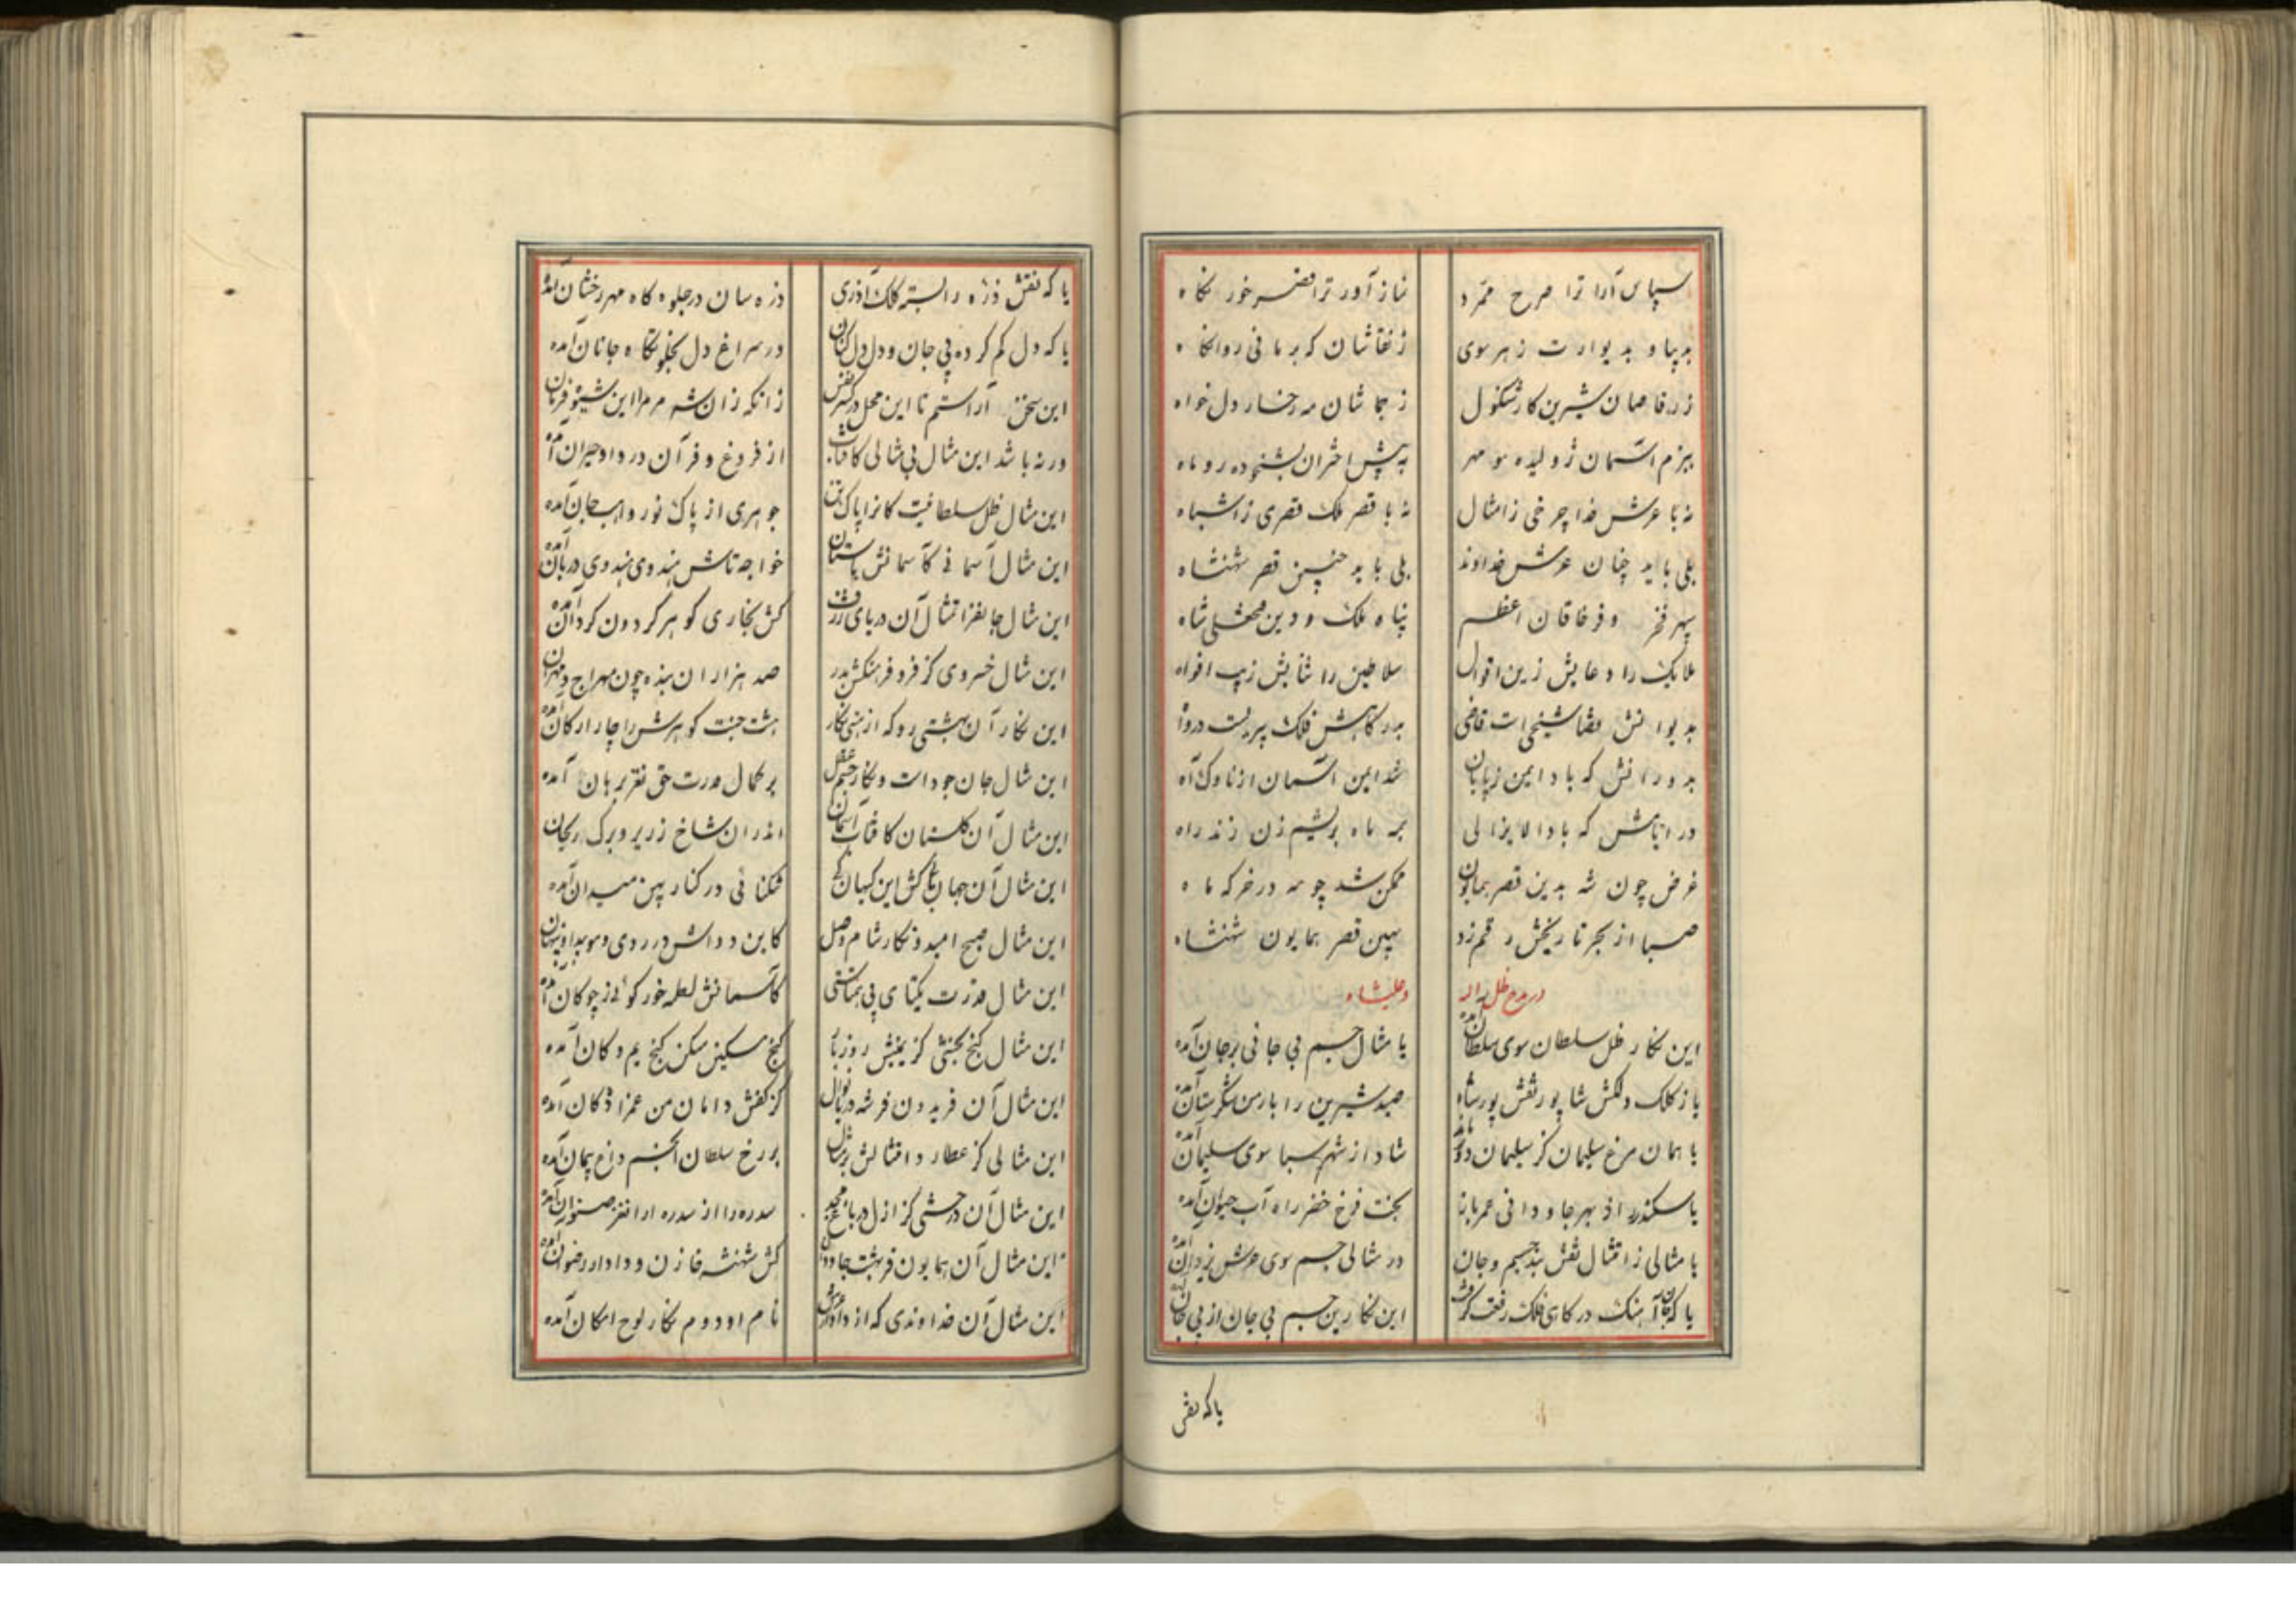 سپاس آرا ترا صرح ممرد
نماز آور ترا قصر خور نگاه
به پیا و به یوارت ز هر سوی
ز نقاشان که بر مانی روانکاه
ز رقاصان شیرین کار شنگول
ز جماشان مه رخسار دل خواه
ببزم آسمان ژولیده مو مهر
به پیش اختران بشخوده رو ماه
نه با عرش خدا چرخی ز امثال
نه با قصر ملک قصری ز اشباه
بلی باید چنان عرش خداوند
بلی باید چنین قصر شهنشاه
سپهر فخر و فر خاقان اعظم
پناه ملک و دین فتحعلی شاه
ملایک را دعایش زین اقوال
سلاطین را ثنایش زیب افواه
بدیوانش قضا شیخی است قاضی
بدرگاهش فلک پیریست درواه
بدورانش که باد ایمن ز پایان
شد ایمن آسمان از ناوک آه
در ایامش که بادا لایزالی
بره ماه بریشم زن زند راه
غرض چون شه بدین قصر همایون
ممکن شد چو مه در خرگه ماه
صبا از بهر تاریخش رقم زد
بهین قصر همایون شهنشاه
در مدح ظل اله
فتحعلیشاه
این نگار ظل سلطان سوی سلطان آمده
یا مثال جسم بی جانی بر جان آمده
یا ز کلک دلکش شاپور نقش پور شاه
صید شیرین را بارمن شکرستان آمده
یا همان مرغ سلیمان کز سلیمان دور ماند
شاد از شهر سبا سوی سلیمان آمده
یا سکندر از بهر جاودانی عمر باز
بخت فرخ خضر راه آب حیوان آمده
یا مثالی ز امتثال نقش بند جسم و جان
در مثالی جسم سوی عرش یزدان آمده
یا که جان آهنگ درگاهی فلک رفعت گرفت
این نگارین جسم بی جان از پی جان آمده
یا که نقش
یا که نقش ذره را بسته کلک آذری
ذره سان در جلوه گاه مهر رخشان آمده
یا که دل گم کرده پی جان و دل دل کنان
در سراغ دل بخلوتگاه جانان آمده
این سخن آراستم تا این محل در کسر نفس
زانکه زان شه مر مرا این شیوه فرمان
ورنه باشد این مثال بی مثالی کافتاب
از فروغ و فر آن در وادحیران آمده
این مثال ظل سلطانیست کانرا پاک تن
جوهری از پاک نور واهب جان آمده
این مثال آسمانی کآسمانش پاستان
خواجه تاش هندوی هندوی دربان آمده
این مثال جانفزا تمثال آن دریای ژرف
کش بخاری گوهر گردون گردان آمده
این مثال خسروی کز فر و فرهنگش بدر
صد هزاران بنده چون مهراج و مهران
این نگار آن بهشتی رو که از مینی نگار
هشت جنت گوهرش را چار ارکان آمده
این مثال جان جود است و نگار جسم عقل
بر کمال قدرت حق نغز برهان آمده
این مثال آن گلستان کافتاب آسمان
اندر ان شاخ زریر و برگ ریحان
این مثال آن جهان باغ کش این کیهان
تنگنائی در کنار پهن میدان آمده
این مثال صبح امید و نگار شام وصل
کاین دو دانش در روی و مو پیدا و پنهان
این مثال قدرت یکتای بی همتاستی
کآسمانش لعله خور گوئی ز چوگان آمده
این مثال گنج بخشی کز یمینش روز بار
گنج مسکین مسکن گنج یم و کان آمده
این مثال آن فریدون فر شه دریا نوال
کز کفش دامان من عمزاد کان آمده
این مثالی کز عطارد امتثالش بر مثال
بر رخ سلطان انجم داغ پیمان آمده
این مثال آن درختی کز ازل در باغ مجد
سدره را از سدره او نغز صنوان آمده
این مثال آن همایون فر بهشت جاودان
کش شهنشه خازن و دادار رضوان آمده
این مثال آن خداوندی که از داور عرش
نام او دوم نگار لوح امکان آمده